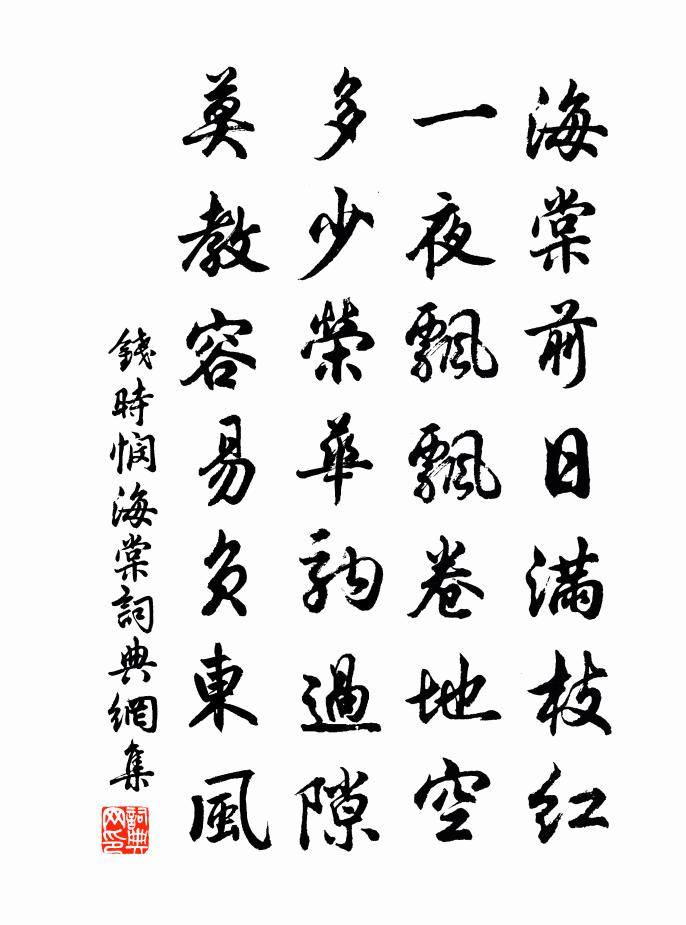 海棠前日滿枝紅
一夜飄飄卷地空
多少榮華駒過隙
莫教容易負東風
錢時憫海棠詞典網集
詞典网印